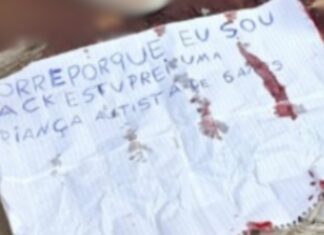 ORREPORQUE EU SOU
ACK ESTUPREI UMA
RIANÇA AUTISTA DE 6 ANOS